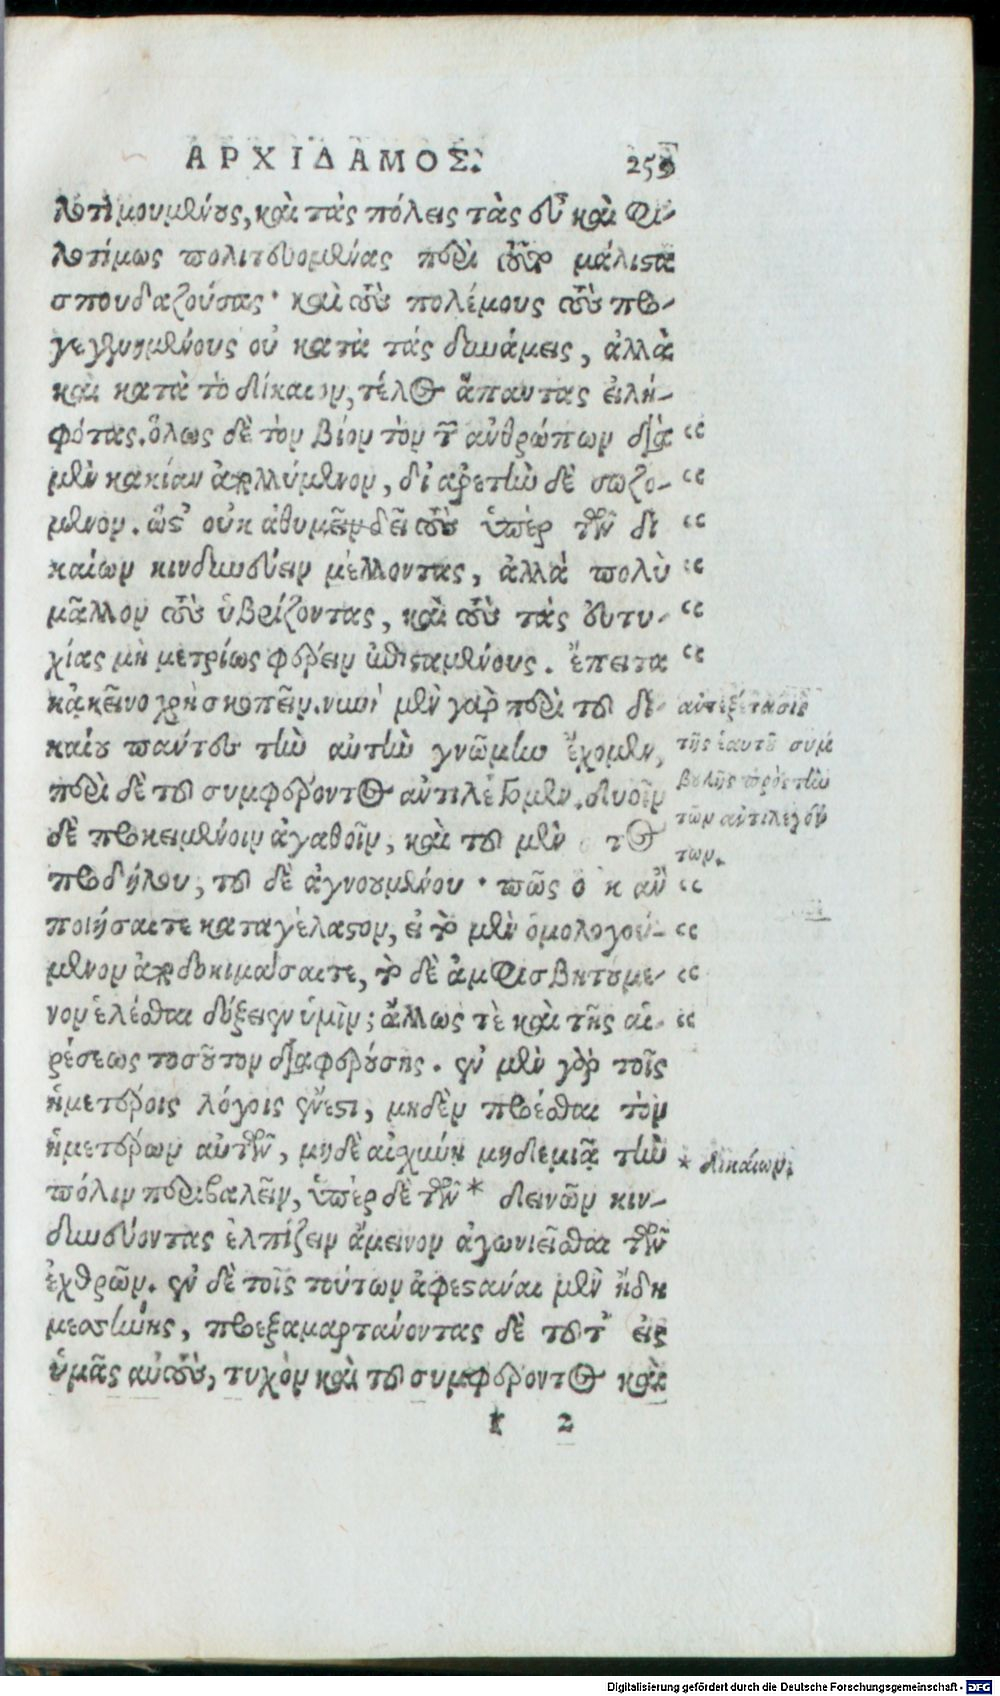 ΑΡΧΙΔΑΜΟΣ. 259
λοτιμουμένους, καὶ τὰς πόλεις τὰς εὖ καὶ φι-
λοτίμως πολιτευομένας περὶ τούτων μάλιστα
σπουδαζούσας· καὶ τοὺς πολέμους τοὺς προ-
γεγενημένους οὐ κατὰ τὰς δυνάμεις, ἀλλὰ
καὶ κατὰ τὸ δίκαιον, τέλος ἅπαντας εἰλη-
φότας. ὅλως δὲ τὸν βίον τὸν τῶν ἀνθρώπων διὰ “
μὲν κακίαν ἀπολλύμενον, δι' ἀρετὴν δὲ σωζό- “
μενον. ὥστ' οὐκ ἀθυμεῖν δεῖ τοὺς ὑπὲρ τῶν δι “
καίων κινδυνεύειν μέλλοντας, ἀλλὰ πολὺ “
μᾶλλον τοὺς ὑβρίζοντας, καὶ τοὺς τὰς εὐτυ- “
χίας μὴ μετρίως φέρειν ἐπισταμένους. ἔπειτα “
κἀκεῖνο χρὴ σκοπεῖν. νυνὶ μὲν γὰρ περὶ τοῦ δι-
καίου πάντες τὴν αὐτὴν γνώμην ἔχομεν,
περὶ δὲ τοῦ συμφέροντος ἀντιλέγομεν. δυοῖν
δὲ προκειμένοιν ἀγαθοῖν, καὶ τοῦ μὲν
προδήλου, τοῦ δὲ ἀγνοουμένου· πῶς οὐκ ἂν “
ποιήσαιτε καταγέλαστον, εἰ τὸ μὲν ὁμολογού- “
μενον ἀποδοκιμάσαιτε, τὸ δὲ ἀμφισβητούμε- “
νον ἑλέσθαι δόξειεν ὑμῖν; ἄλλως τὲ καὶ τῆς αἱ- “
ρέσεως τοσοῦτον διαφερούσης. ἐν μὲν γὰρ τοῖς
ἡμετέροις λόγοις ἔνεστι, μηδὲν προέσθαι τὸν
ἡμετέρων αὐτῶν, μηδὲ αἰσχύνῃ μηδεμιᾷ τὴν
πόλιν περιβαλεῖν, ὑπὲρ δὲ τῶν * δεινῶν κιν-
δυνεύοντας ἐλπίζειν ἄμεινον ἀγωνιεῖσθαι τῶν
ἐχθρῶν. ἐν δὲ τοῖς τούτων ἀφεστάναι μὲν ἤδη
μεσσήνης, προεξαμαρτάνοντας δὲ τοῦτ' εἰς
ὑμᾶς αὐτοὺς, τυχὸν καὶ τοῦ συμφέροντος καὶ
2
ἀντεξέτασις
τῆς ἑαυτοῦ συμ
βουλῆς πρὸς τὴν
τῶν ἀντιλεγόν
των.
* δικαίων.
Digitalisierung gefördert durch die Deutsche Forschungsgemeinschaft - DFG